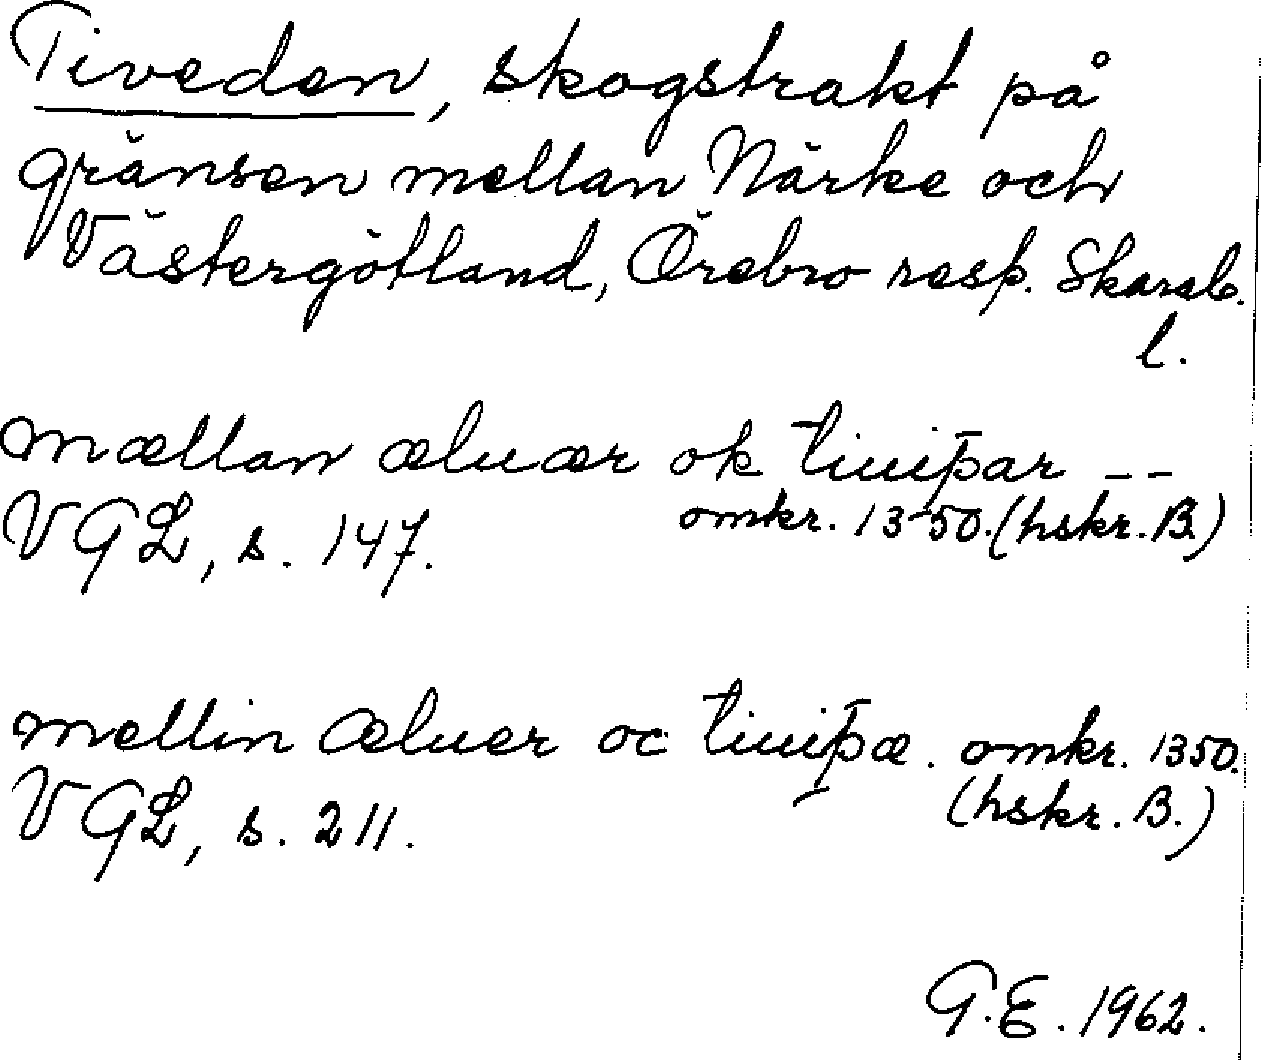 Tiveden, skogstrakt på
gränsen mellan Närke och
Västergötland, Örebro resp. Skarab.
l.
mællan æluær ok tiuiþar --
omkr. 1350. (hskr. B.)
VGL, s. 147.
mellin æluer oc tiuiþæ. omkr. 1350.
(hskr. B.)
VGL, s. 211.
G.E. 1962.